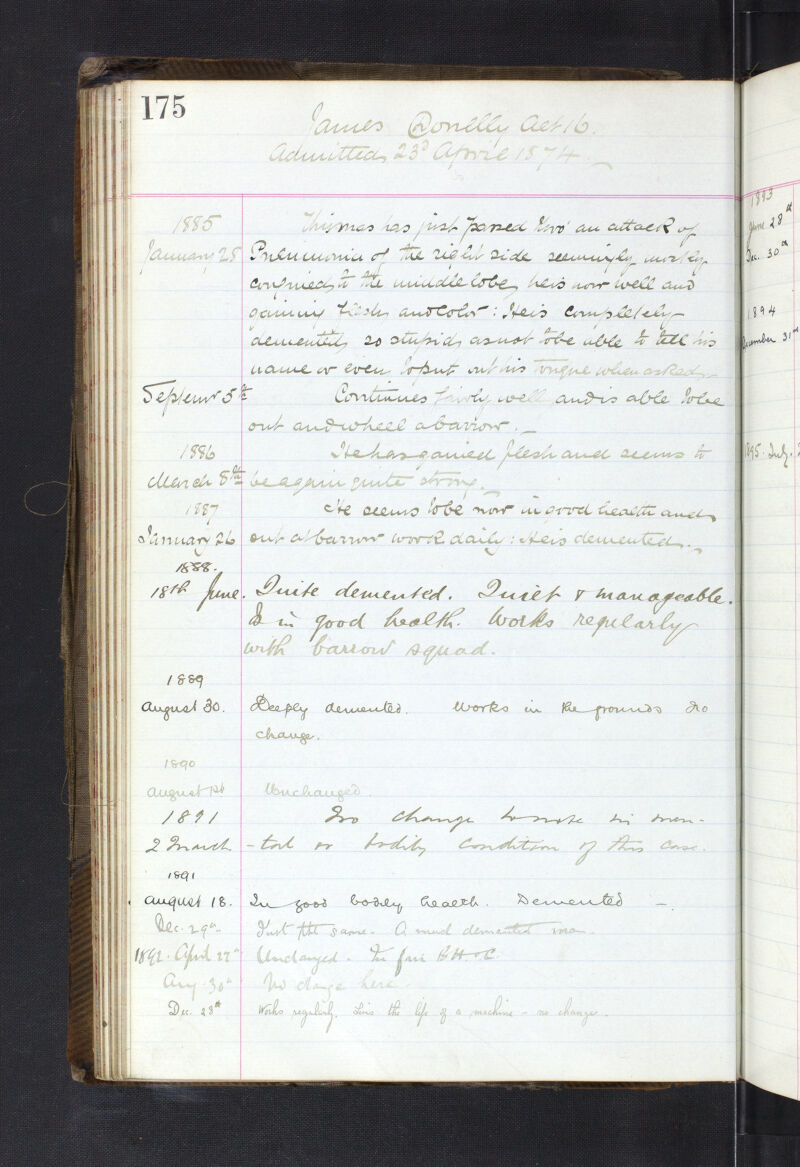 175
James Donelly Aet 16.
Admitted 23d April 1874
1885 This man has just passed thro' an attack of
January 28 Pneumonia of the right side seemingly mostly
confined to the middle lobe, he is now well and
gaining flesh and color: He is completely
demented, so stupid as not to be able to tell his
name or even to put out his tongue when asked
Septemr 5th Continues fairly well and is able to be
out and wheel a barrow.
1886 He has gained flesh and seems to
March 8th be again quite strong.
1887 He seems to be now in good health and
January 26 out at barrow work daily: He is demented.
1888.
18th June. Quite demented. Quiet & manageable.
Is in good health. Works regularly
with barrow squad.
1889
August 30. Deeply demented. Works in the grounds No
change.
1890
August 1st Unchanged.
1891 No change to note in men-
2 March -tal or bodily condition of this case.
1891
August 18. In good bodily health. Demented -.
Dec. 29th Just the same. A much demented man.
1892. April 27th Unchanged. In fair B.H. & C.
Aug. 30th No change here.
Dec. 23rd Works regularly. Lives the life of a machine - no change.
1893
June 28th
Dec. 30th
1894
December 31st
1895. July.